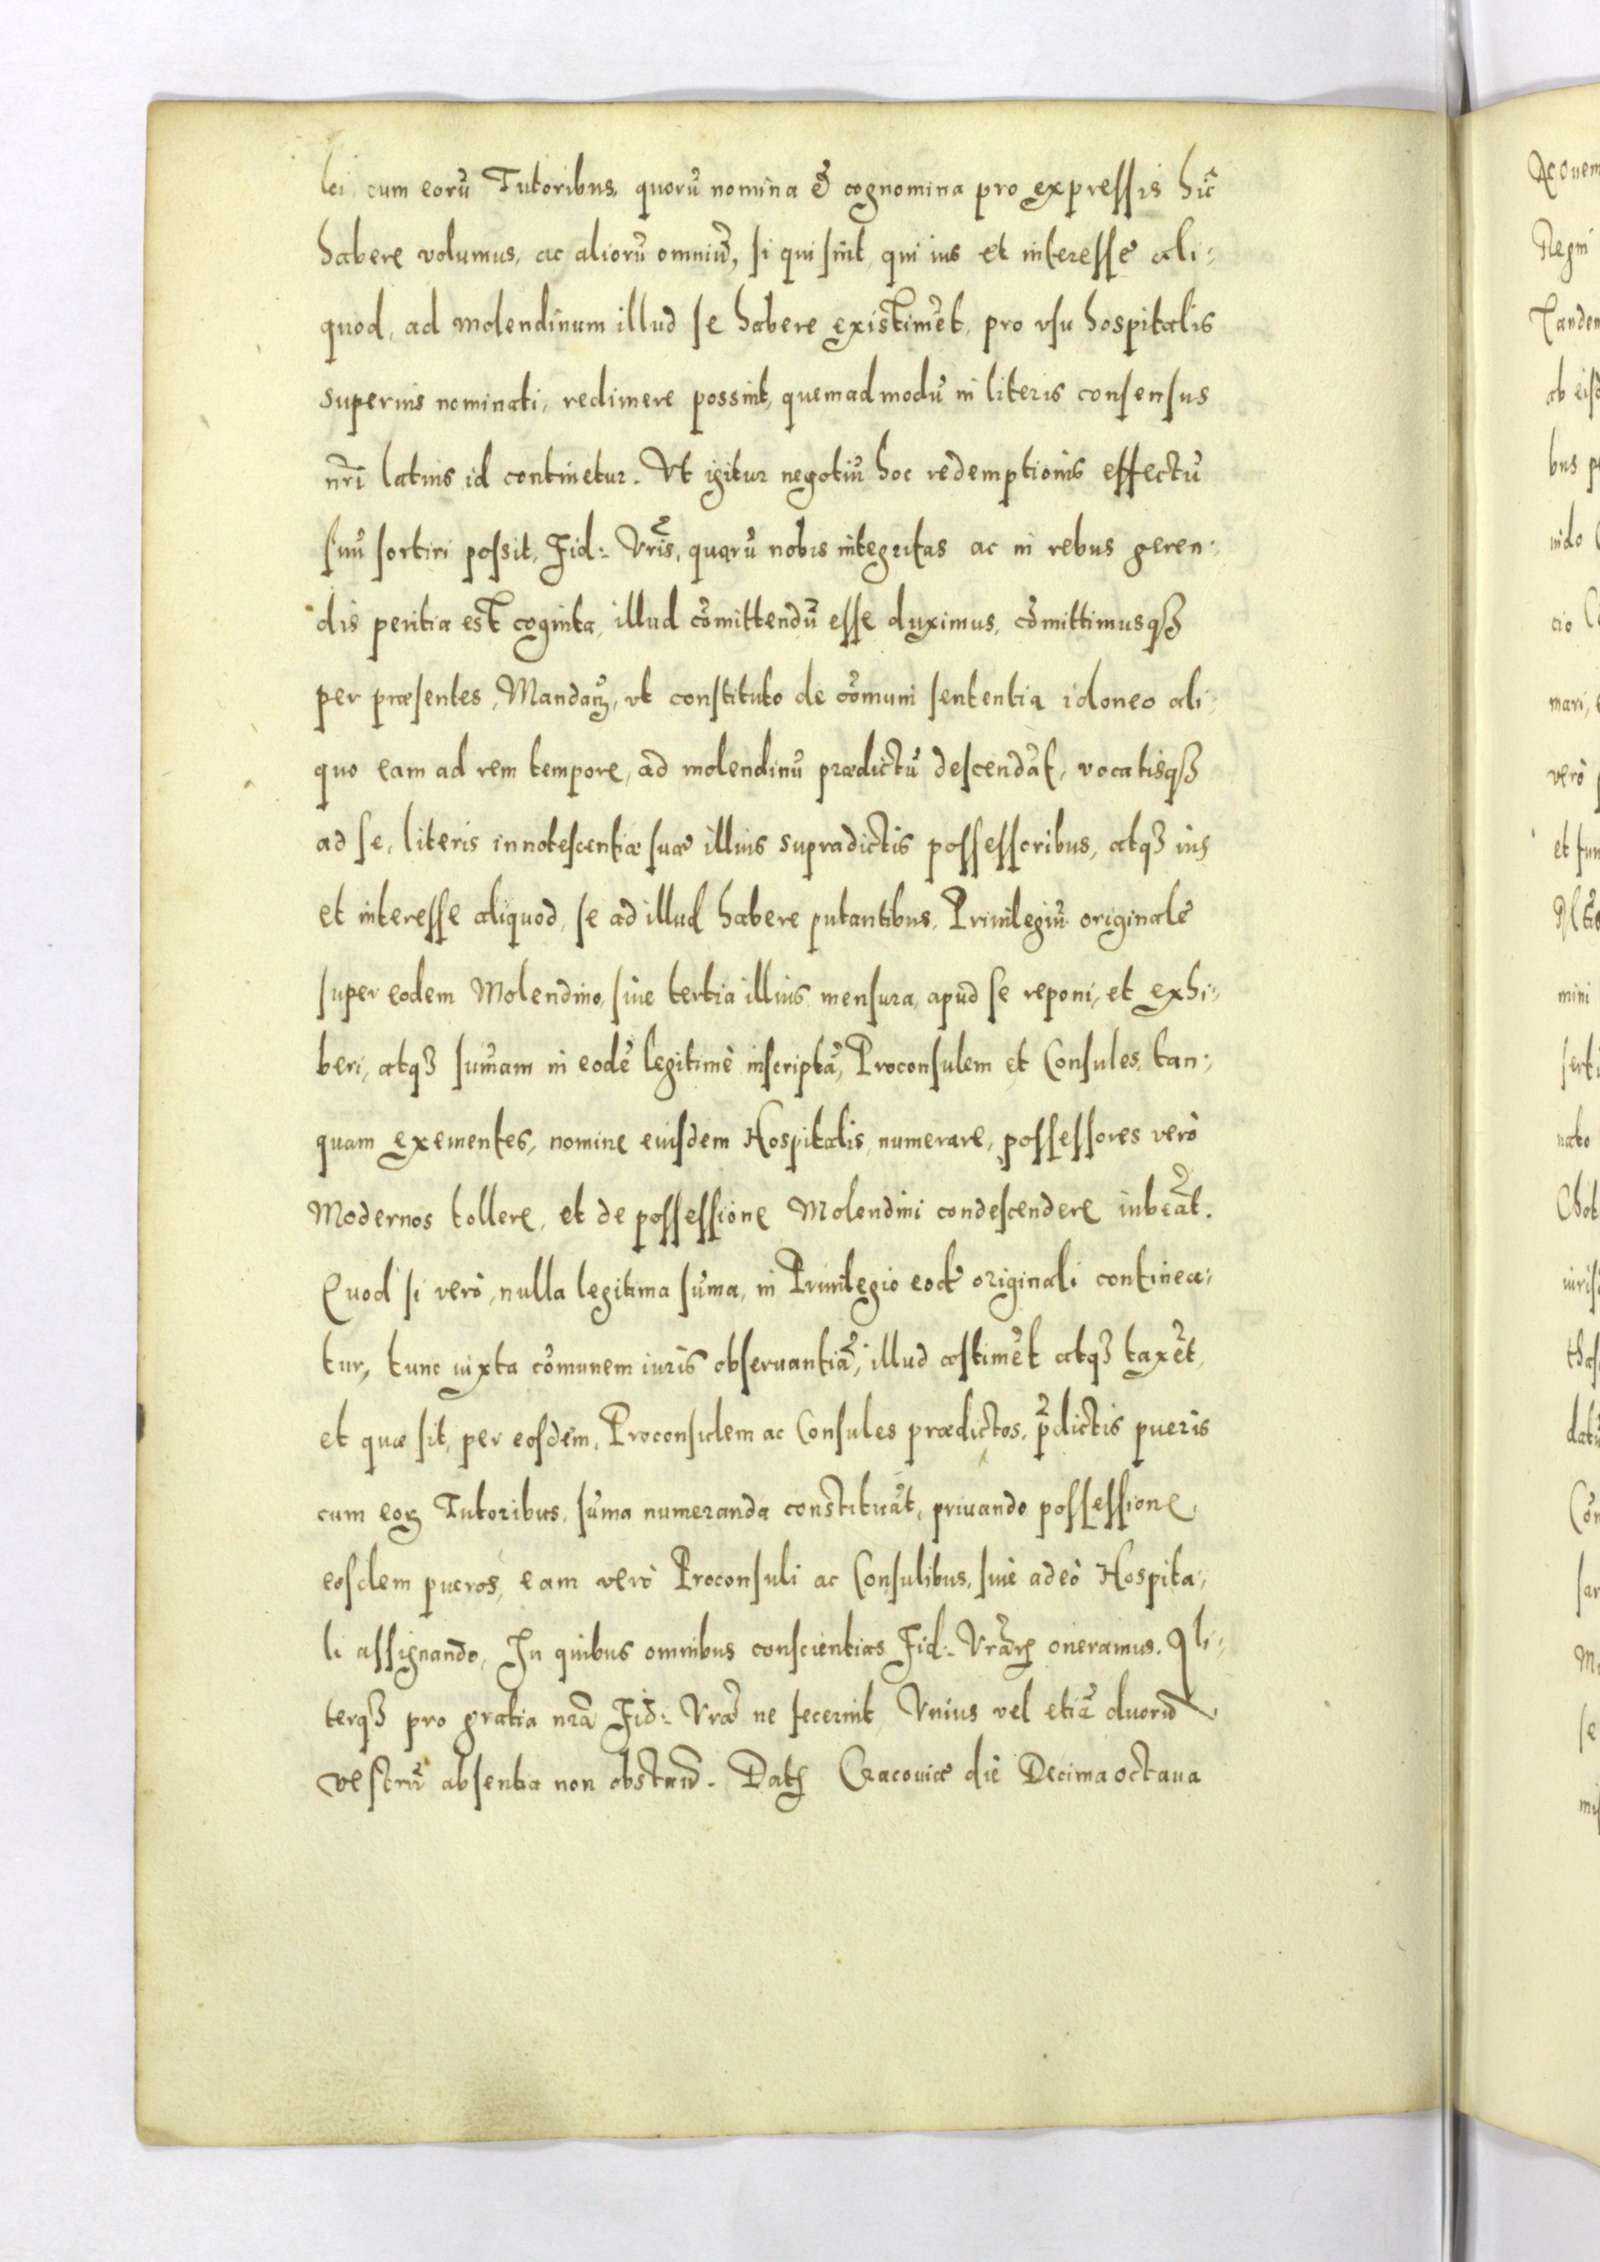 lei cum eorũ Tutoribus, quorũ nomina & cognomina pro expressis hîc
habere volumus, ac aliorũ omniũ, si qui sint, qui ius et interesse ali:
quod, ad molendinum illud se habere existimẽt, pro vsu hospitalis
superius nominati, redimere possint, quemadmodũ in literis consensus
nr̃i latius id continetur. Vt igitur negotiũ hoc redemptionis effectũ
suũ sortiri possit, Fid: Vr̃is, quarũ nobis integritas ac in rebus geren:
dis peritia est cognita, illud cõmittendũ esse duximus, cõmittimusqꝫ
per præsentes, Mandañ, vt constituto de cõmuni sententia idoneo ali:
quo eam ad rem tempore, ad molendinũ prædictũ descendãt, vocatisqꝫ
ad se, literis innotescentiæ suæ illius supradictis possessoribus, atqꝫ ius
et interesse aliquod, se ad illud habere putantibus, Priuilegiũ originale
super eodem Molendino, siue tertia illius mensura, apud se reponi, et exhi:
beri, atqꝫ sum̃am in eodẽ legitimè inscriptã, Proconsulem et Consules, tan:
quam exementes, nomine eiusdem Hospitalis, numerare, possessores verò
Modernos tollere, et de possessione Molendini condescendere iubeãt.
Quod si verò, nulla legitima sum̃a, in Priuilegio eodẽ originali continea:
tur, tunc iuxta cõmunem iuris obseruantiã, illud æstimẽt atqꝫ taxẽt,
et quæ sit, per eosdem, Proconsulem ac Consules prædictos, p̃dictis pueris
cum eoꝝ Tutoribus, sum̃a numeranda constituãt, priuando possessione,
eosdem pueros, eam verò Proconsuli ac Consulibus, siuè adeò Hospita:
li assignando, In quibus omnibus conscientias Fid: Vrãꝝ oneramus. Ali:
terqꝫ pro gratia nr̃a Fid: Vræ ne fecerint, Vnius vel etiã duorũ
vestrũ absentia non obstan̄. Datꝫ Cracouiæ die Decima octaua